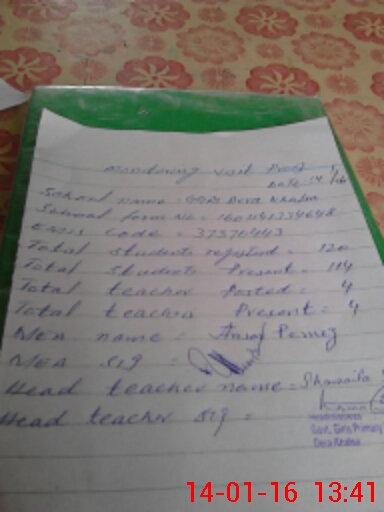 monitoring visit Proof
DATE: 14/1/16
School name: GGPS Dera Khalsa
School form No = 1601141334648
EMIS Code = 37370443
Total students registerd = 120
Total students Present = 114
Total teacher Posted = 4
Total teachers Present = 4
MEA name = Pervez
MEA sig =
Head teacher name = Shumaila
Head teacher sig =
Headmistress
Govt. Girls Primary
Dera Khalsa
14-01-16 13:41